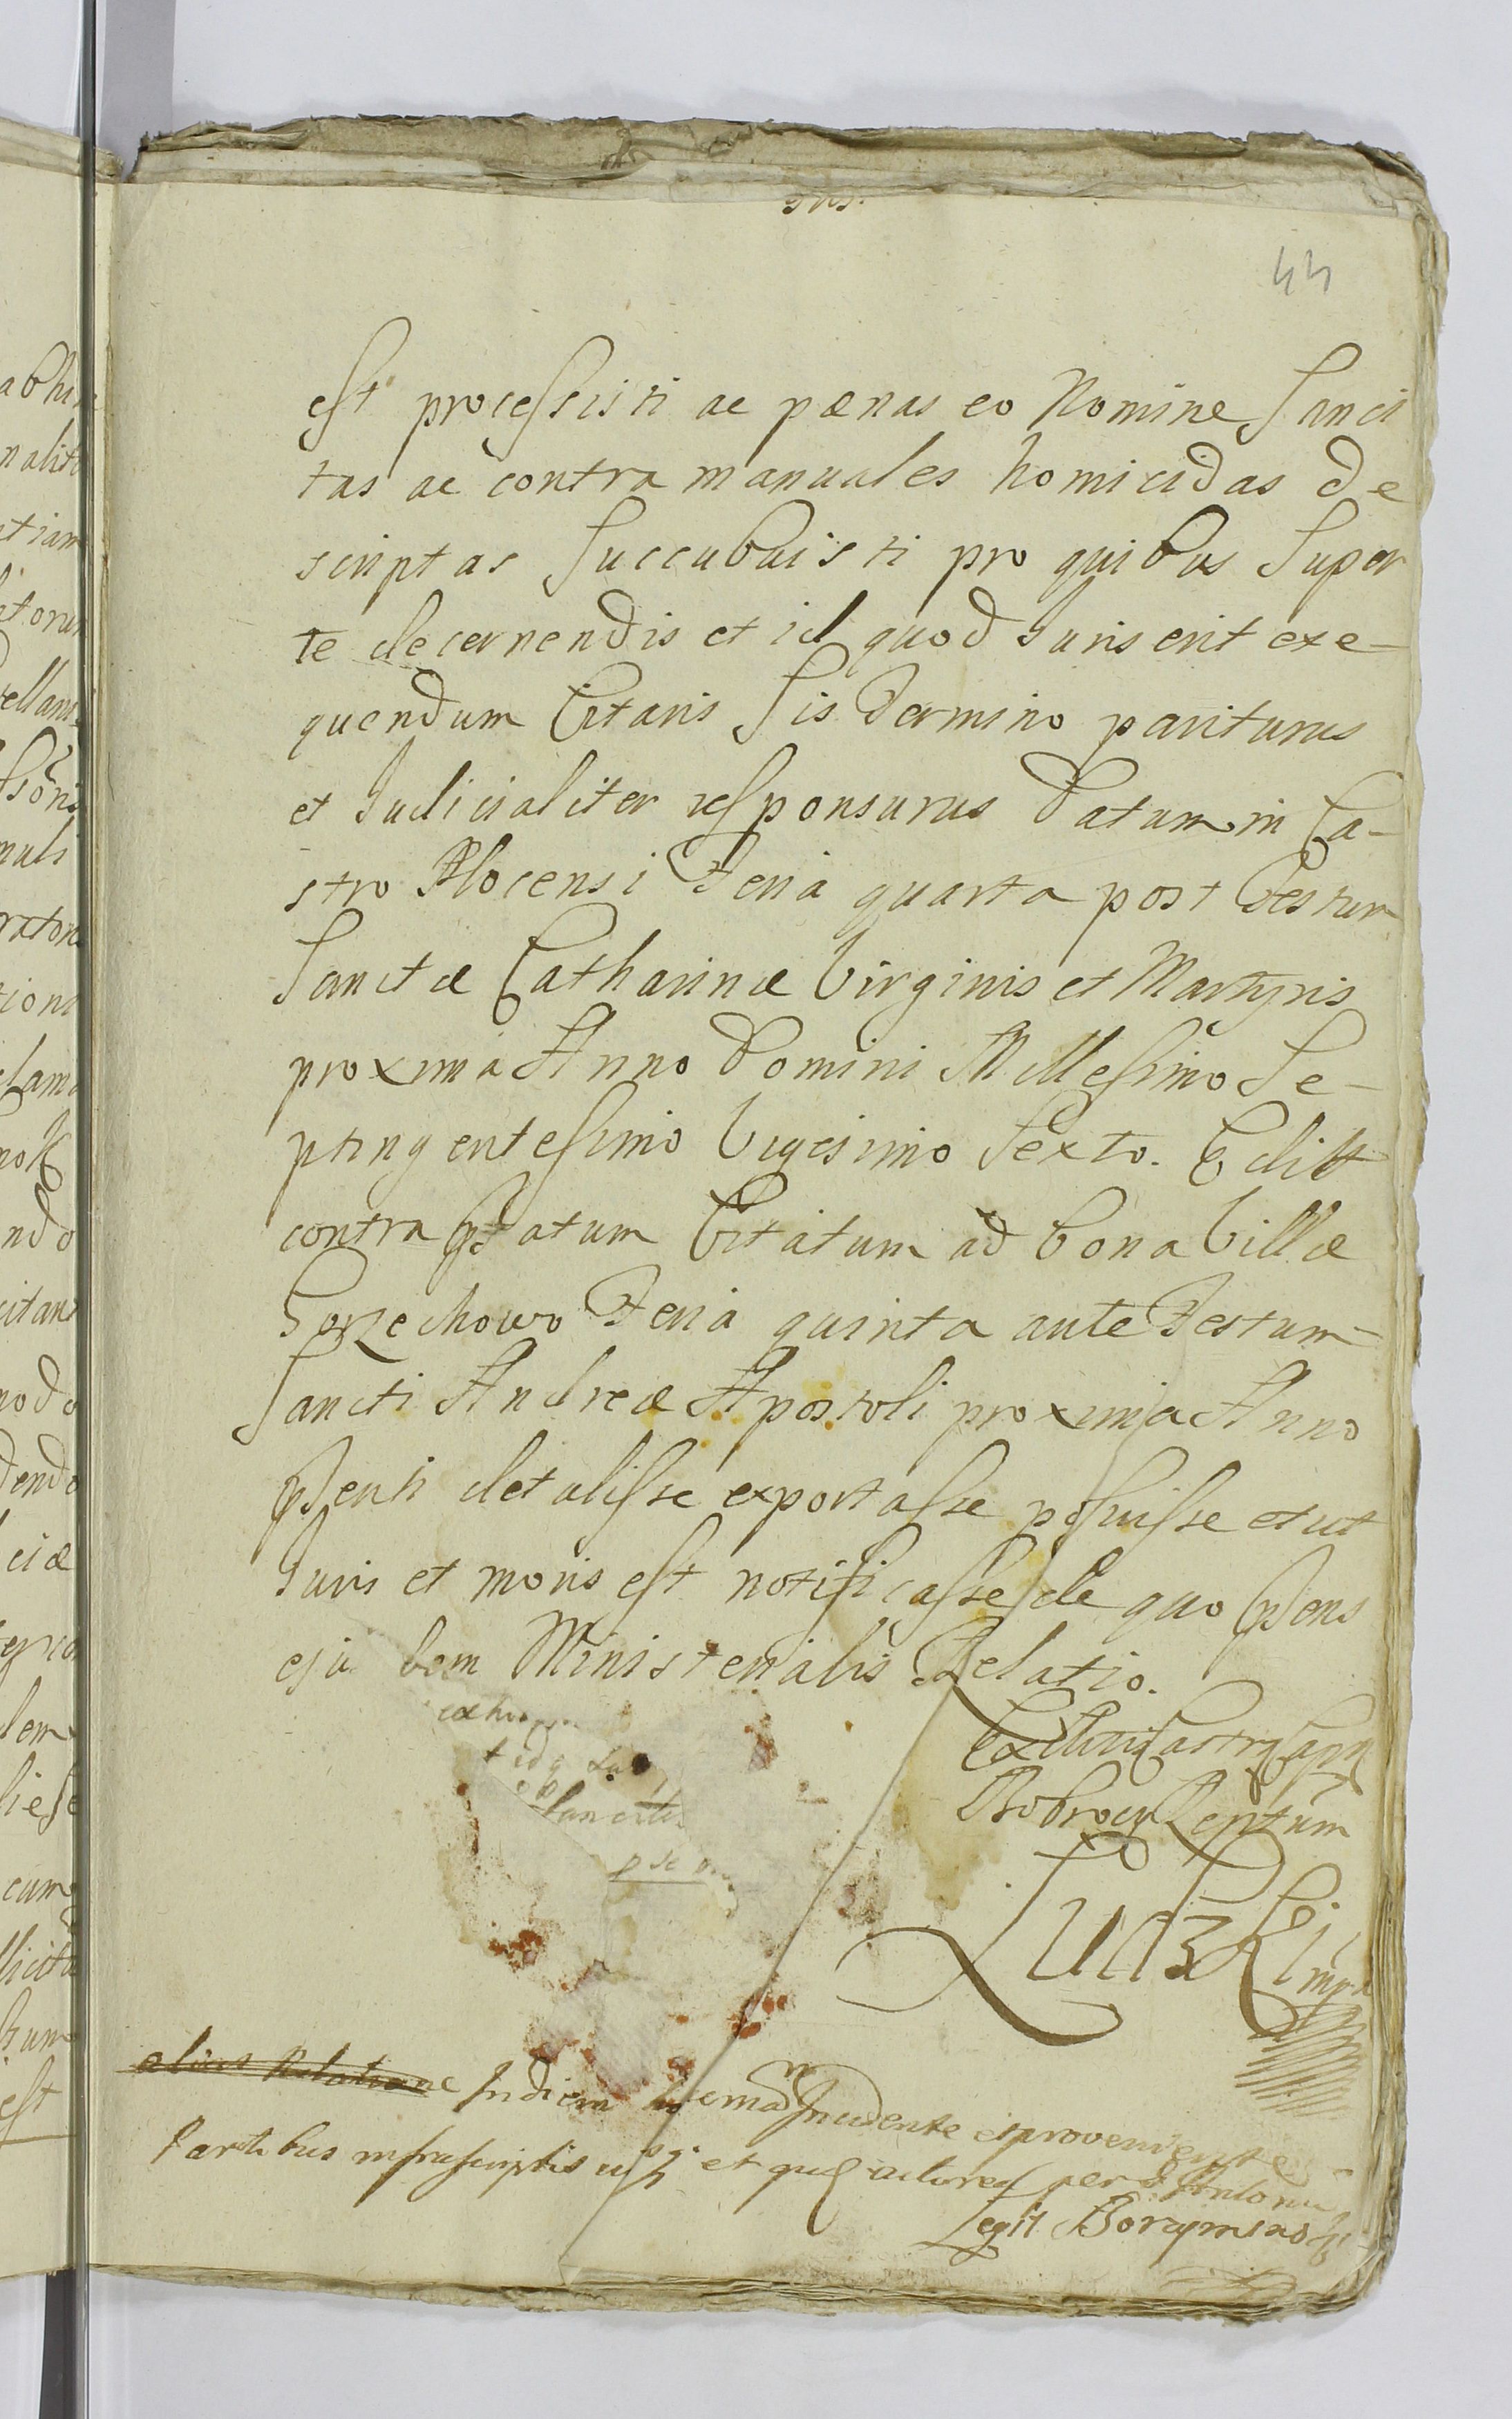 44
est processisti ac pænas eo Nomine Sanci
tas ac contra manuales homicidas de
scriptas Succubuisti pro quibus Super
te decernendis et id quod Iuris erit exe-
quendum Citaris Sis Termino pariturus
et Iudicialiter responsurus Datum in Ca-
stro Plocensi Feria quarta post Festum
Sanctæ Catharinæ Virginis et Martyris
proxima Anno Domini Millesimo Se-
ptingentesimo Vigesimo Sexto.
contra Citatum ad bona Villæ
Gorzechowo Feria quinta ante Festum
Sancti Andreæ Apostoli proxima Anno
pnti detulisse exportasse posuisse et ut
Iuris et moris est notificasse de quo pns
ejusdem Ministerialis Relatio.
Ex Actis Castren Capit
Dobrocen Reptum
Ludzki mp
alias Relatione In diem
Partibus infrascriptis et actorea per
Legit Borzyminski